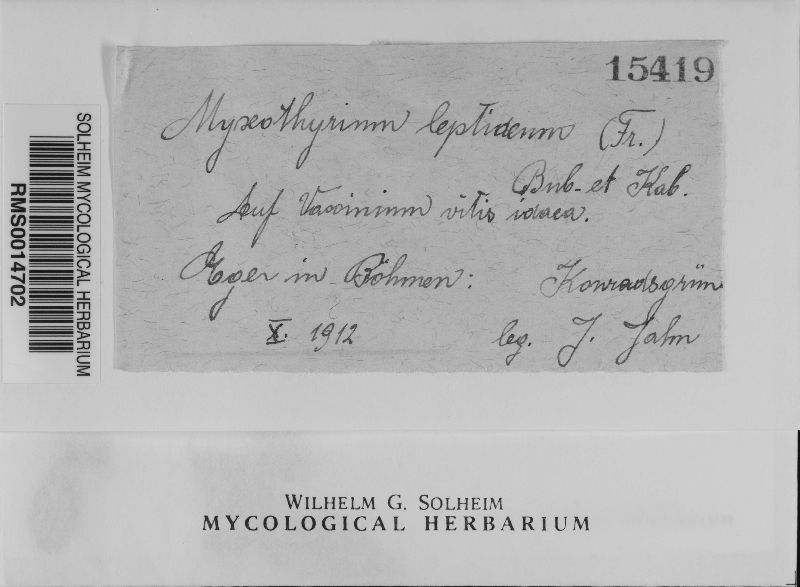 15419
Myxothyrium leptideum (Fr.)
Bub. et Kab.
Auf Vaccinium vitis idaea.
Eger in Böhmen: Konradsgrün
X. 1912 leg. J. Jahn
SOLHEIM MYCOLOGICAL HERBARIUM
RMS0014702
WILHELM G. SOLHEIM
MYCOLOGICAL HERBARIUM